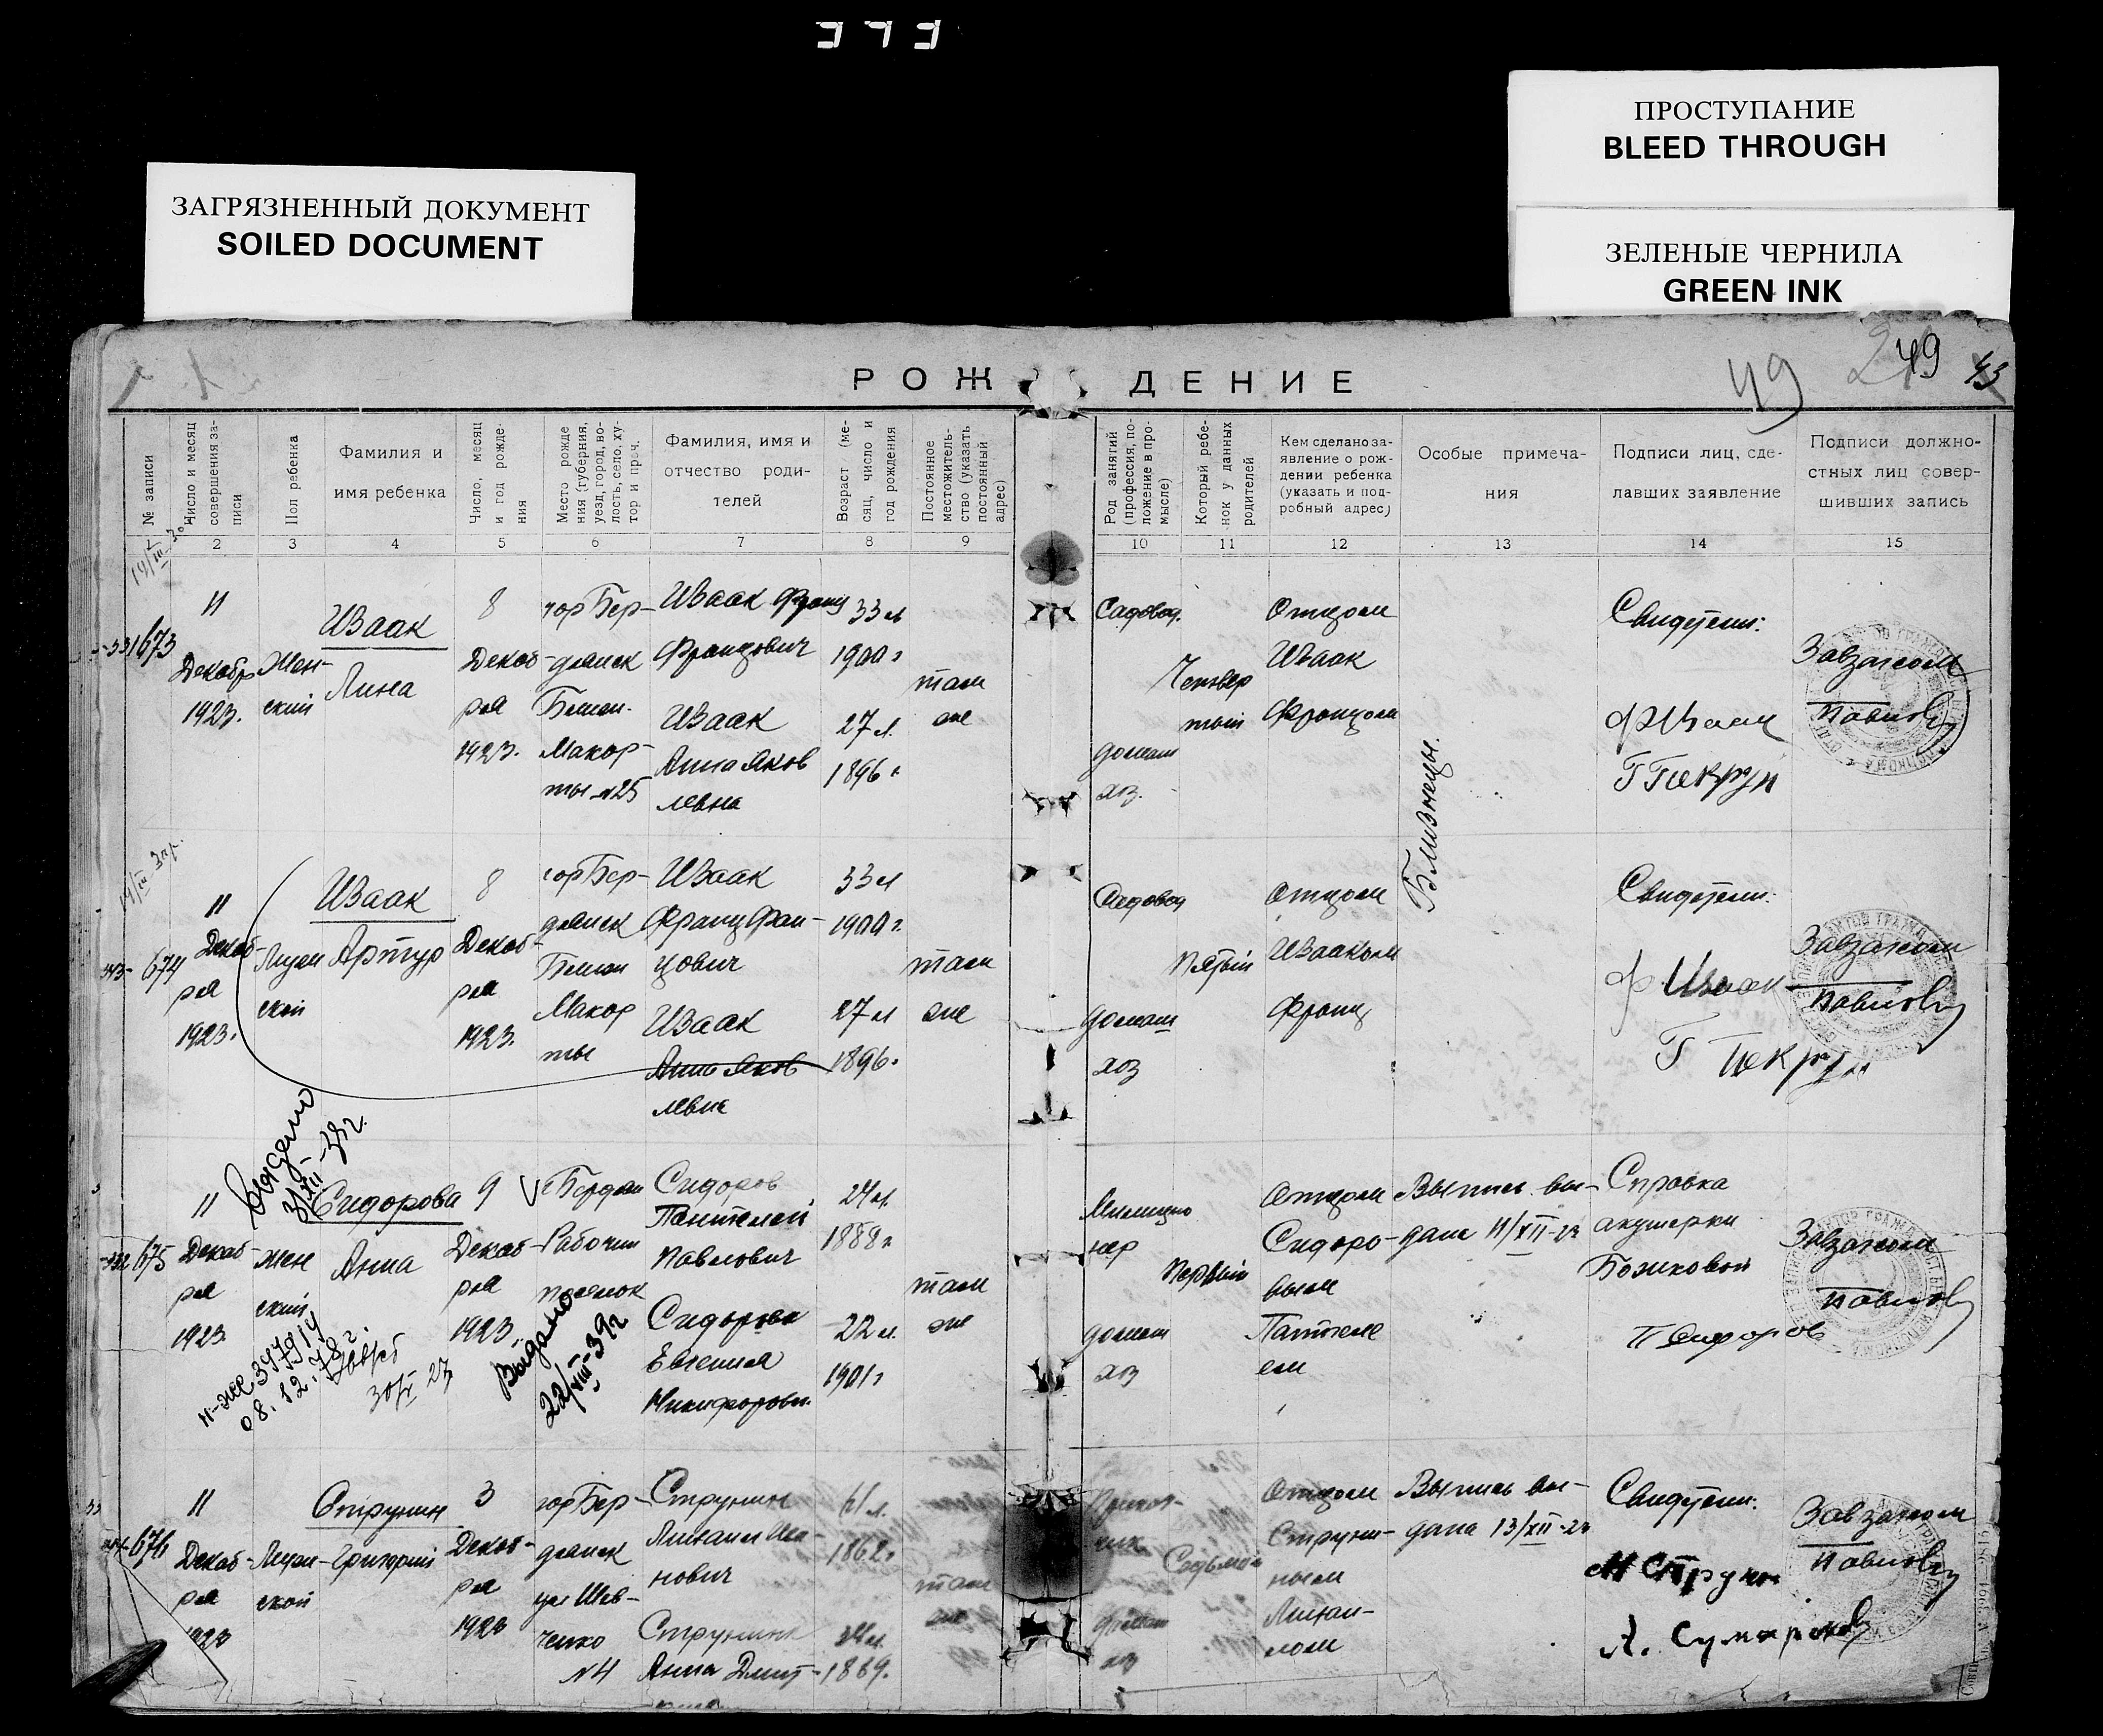 ЗАГРЯЗНЕННЫЙ ДОКУМЕНТ
SOILED DOCUMENT
ПРОСТУПАНИЕ
BLEED THROUGH
ЗЕЛЕНЫЕ ЧЕРНИЛА
GREEN INK
49
РОЖДЕНИЕ
№ записи
Число и месяц
совершения за-
писи
Пол ребенка
Фамилия и
имя ребенка
Число, месяц
и год рожде-
ния
Место рожде
ния (губерния,
уезд, город, во-
лость, село, ху-
тор и проч.
Фамилия, имя и
отчество роди-
телей
Возраст (ме-
сяц, число и
год рождения
Постоянное
местожитель-
ство (указать
постоянный
адрес)
Род занятий
(профессия, по-
ложение в про-
мысле)
Который ребе-
нок у данных
родителей
Кем сделано за-
явление о рож-
дении ребенка
(указать и под-
робный адрес)
Особые примеча-
ния
Подписи лиц, сде-
лавших заявление
Подписи должно-
стных лиц совер-
шивших запись
2 3 4 5 6 7 8 9 10 11 12 13 14 15
673
11
Декабр
1923.
Жен-
ский
Изаак
Лина
8
Декаб-
ря
1923.
гор Бер-
дянск
Макор-
ты №25
Изаак Франц
Францович
Изаак
Анна Яков
левна
33 л
1900 г
27 л.
1896 г
там
же
Садовод.
домаш
хоз.
Четвер
тый
Отцом
Изаак
Францом
Близнецы.
Свидетели:
Завзагсом
674
11
Декаб-
ря
1923.
Мужской
Изаак
Артур
8
Декаб-
ря
1923.
гор Бер-
дянск
Макор
ты
Изаак
Франц Фран-
цович
Изаак
Анна Яков
левна
33 л
1900 г.
27 л
1896.
там
же
Садовод
домаш
хоз
Пятый
Отцом
Изааком
Франц
Свидетели:
Ф Изаак
Завзагсом
675
11
Декаб-
ря
1923
жен
ский
Сидорова
Анна
9
Декаб-
ря
1923
Рабочий
поселок
Сидоров
Пантелей
Павлович
Сидорова
Евгения
Никифоровн.
24 л.
22 л.
1901 г
там
же
Милицио
нер
домаш
хоз
Первый
Отцом
Сидоро-
вым
Пантеле
ем
Выпись вы-
дана 11/XII-23
Справка
акушерки
П Сидоров
Завзагсом
Выдано
22/VIII-39г
08.12.78г.
676
11
Декаб-
ря
1923
Мужской
Струнин
Григорий
3
Декаб-
ря
1923
гор Бер-
дянск
ул Шев-
ченко
№4
Струнин
Михаил Ива-
нович
Струнина
Анна Дмит-
61 л.
1862 г
1869.
там
же
Седьмой
Отцом
Струни-
ным
Михаи-
лом
Выпись вы-
дана 13/XII-23
Свидетели:
М Струнин
Завзагсом